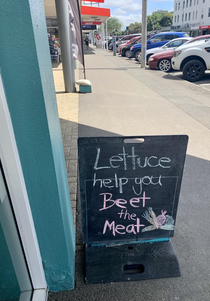 Lettuce
help you
Beet
the
Meat